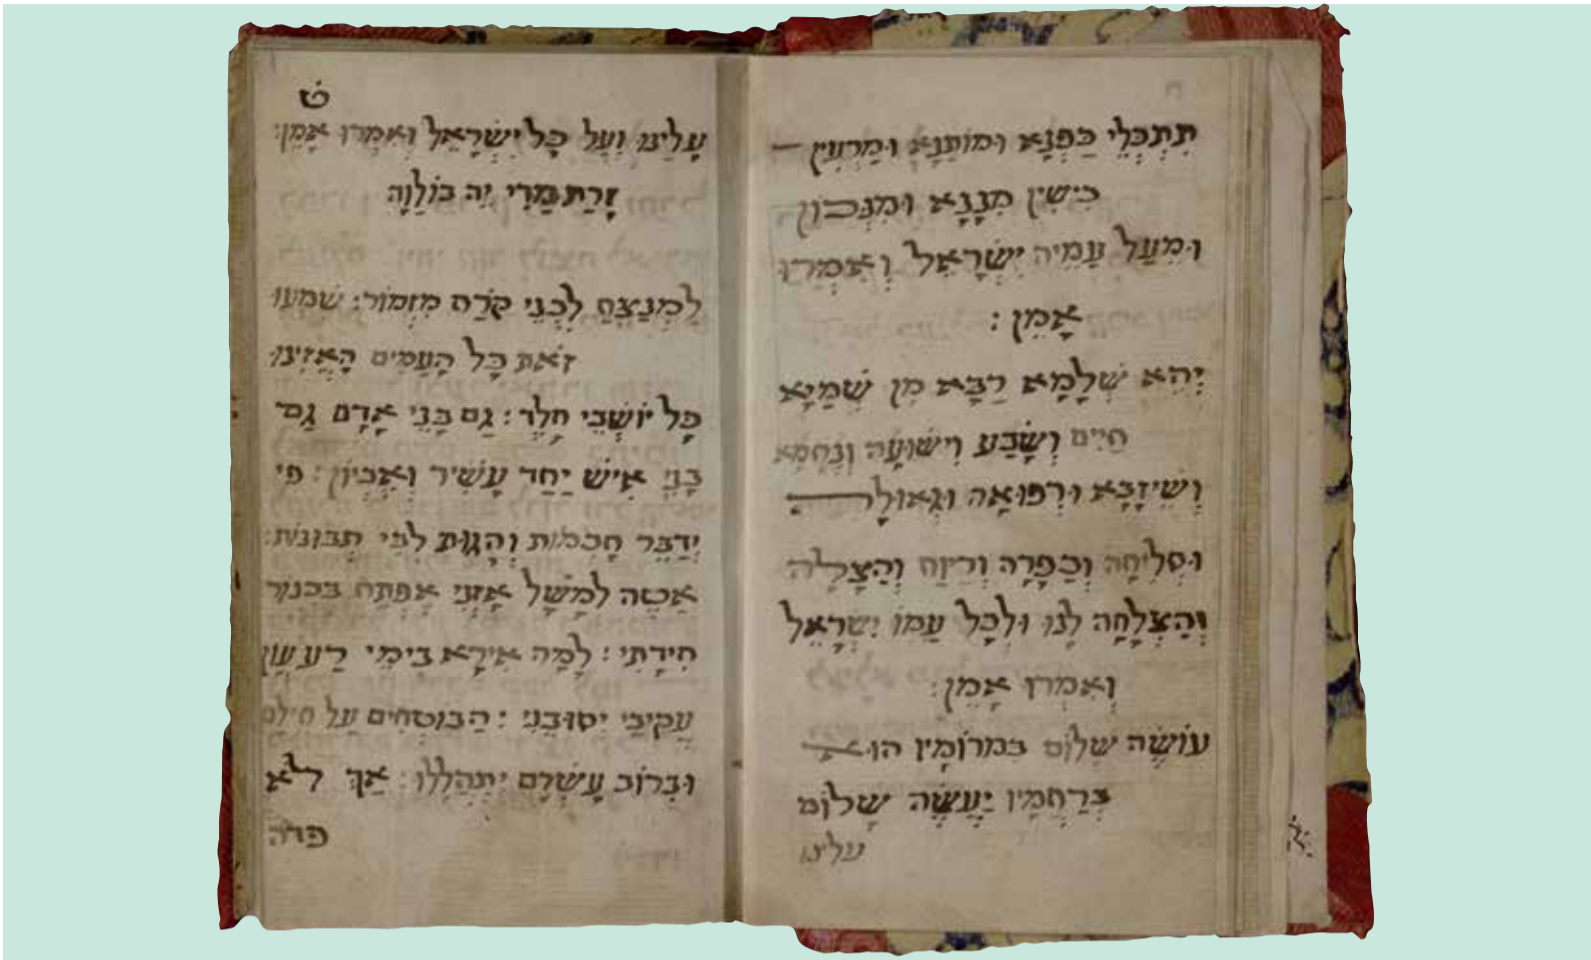 תִתְכְּלֵי כַּפְנָא וּמוֹתָנָא וּמַרְעִין
בִישִין מִנָנָא וּמִנְכוֹן
וּמֵעַל עַמֵיה יִשְׂרָאֵל וְאִמְרוּ
אָמֵן :
יְהֵא שְׁלָמָא רַבָּא מִן שְׁמַיָא
חַיִים וְשָׂבַע וִישׁוּעָה וְנֶחָמָא
וְשֵׁיזָבָא וּרְפוּאָה וּגְאוּלָה
וּסְלִיחָה וְכַפָּרָה וְרֵיוַח וְהַצָלָה
וְהַצְלָחָה לָנוּ וּלְכָל עַמוֹ יִשְׂרָאֵל
וְאִמְרוּ אָמֵן :
עוֹשֶׂה שָׁלוֹם בִּמְרוֹמָיו הוּא
בְּרַחֲמָיו יַעֲשֶׂה שָׁלוֹם
עלינו
ט
עָלֵינוּ וְעַל כָּל יִשְׂרָאֵל וְאִמְרוּ אָמֵן :
לַמְנַצֵחַ לִבְנֵי קֹרַח מִזְמוֹר : שִׁמְעוּ
זֹאת כָּל הָעַמִים הַאֲזִינוּ
כָּל יוֹשְׁבֵי חָלֶד : גַם בְּנֵי אָדָם גַם
בְּנֵי אִישׁ יַחַד עָשִׁיר וְאֶבְיוֹן : פִּי
יְדַבֵּר חָכְמוֹת וְהָגוּת לִבִּי תְבוּנוֹת :
אַטֶה לְמָשָׁל אָזְנִי אֶפְתַּח בְּכִנוֹר
חִידָתִי : לָמָה אִירָא בִּימֵי רָע עֲוֹן
עֲקֵיבַי יְסוּבֵּנִי : הַבּוֹטְחִים עַל חֵילָם
וּבְרוֹב עָשְׁרָם יִתְהַלָלוּ : אַךְ לֹא
פדה